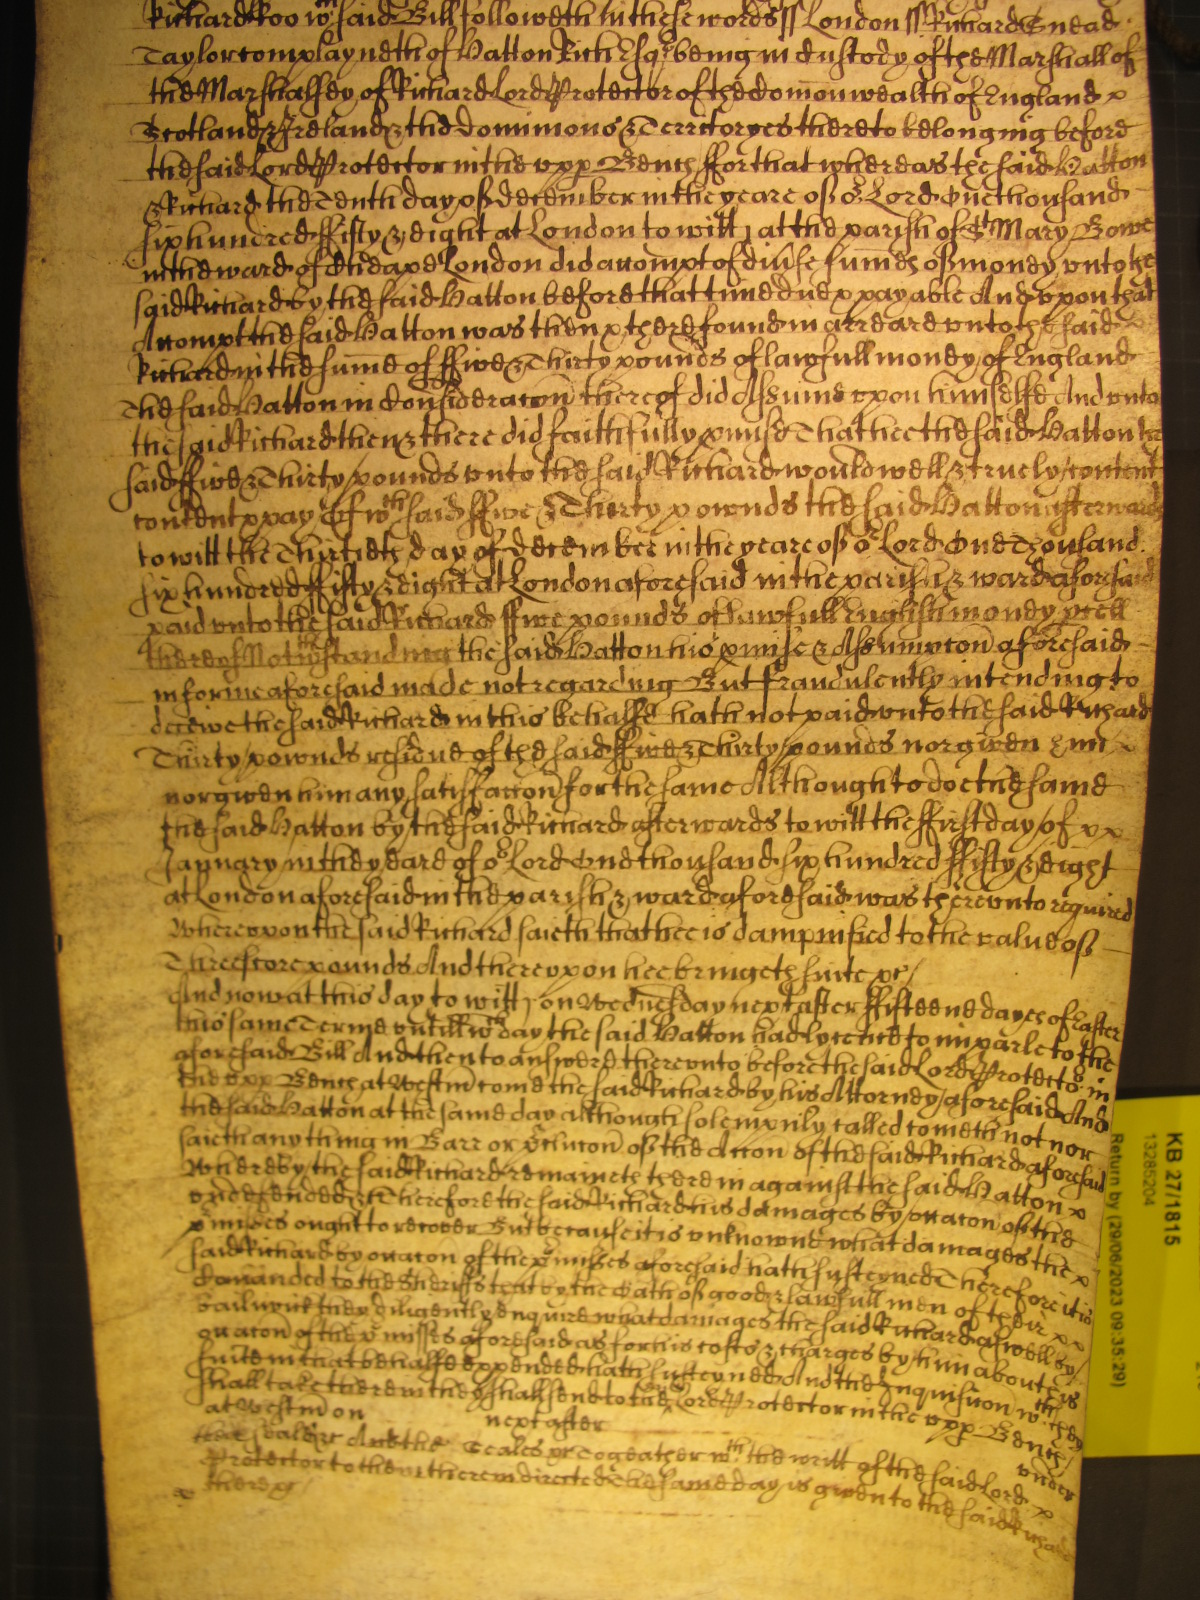 Richard Roo wth said Bill followeth in these words ss London ss Richard Snead
Taylor complayneth of Hatton Rich Esqr being in Custody of the Marshall of
the Marshalsey of Richard Lord Protector of the Comonwealth of England
Scotland & Ireland & the Dominions & Territoryes thereto belonging before
the said Lord Protector in the vpp Bench ffor that whereas the said Hatton
& Richard the Tenth day of December in the yeare of or Lord One thousand
six hundred ffifty & eight at London to witt at the parish of St Mary Bowe
in the ward of Cheape London did accompt of diuse sumes of money vnto the
said Richard by the said Hatton before that time due & payable And vpon that
Accompt the said Hatton was then & there found in arreare vnto the said
Richard in the sume of ffive & Thirty pounds of lawfull money of England
The said Hatton in Consideracon thereof did Assume vpon himselfe And vnto
the said Richard then & there did faithfully pmise That hee the said Hatton the
said ffive & Thirty pounds vnto the said Richard would well & truely content
content & pay Of wch said ffive & Thirty pownds the said Hatton afterwards
to witt the Thirtieth day of December in the yeare of or Lord One Thousand
six hundred ffifty & eight at London aforesaid in the parish & ward aforesaid
paid vnto the said Richard ffive pounds of lawfull English money pcell
thereof Notwthstanding the said Hatton his pmise & Assumpcon aforesaid
in forme aforesaid made not regarding But fraudulently intending to
deceive the said Richard in this behalfe hath not paid vnto the said Richard
Thirty pownds residue of the said ffive & Thirty pounds nor given him
nor given him any satisfaccon for the same Although to doe the same
the said Hatton by the said Richard afterwards to witt the ffirst day of
January in the yeare of or Lord One thousand six hundred ffifty & eight
at London aforesaid in the parish & ward aforesaid was therevnto required
Wherevpon the said Richard saieth that hee is dampnified to the value of
Threescore pounds And therevpon hee bringeth suite &c
And now at this day to witt on Wednesday next after ffifteene dayes of Easter
this same Terme vntill wch day the said Hatton had lycence to imparle to the
aforesaid Bill And then to answere therevnto before the said Lord Protector in
the vpp Bench at Westm come the said Richard by his Attorney aforesaid And
the said Hatton at the same day although solempnly called cometh not nor
saieth any thing in Barr or pclucon of the Accon of the said Richard aforesaid
Whereby the said Richard remaineth therein against the said Hatton
vndefended &c Therefore the said Richard his damages by occacon of the
pmisses ought to recover But because it is vnknowne what damages the
said Richard by occacon of the pmisses aforesaid hath susteyned Therefore it is
Comanded to the Sheriffs that by the Oath of good & lawfull men of their
bailiwick they diligently enquire what damages the said Richard aswell by
occacon of the pmisses aforesaid as for his costs & charges by him about his
suite in that behalfe expended hath susteyned And the Inquisicon wch they
shall take therein they shall send to the Lord Protector in the vpp Bench
at Westm on next after vnder
their seales &c And the Seales &c Togeather wth the writt of the said Lord
Protector to them therein directed The same day is given to the said Richard
there &c
KB 27/1815
13285204
Return by (29/06/2023 09:35:29)